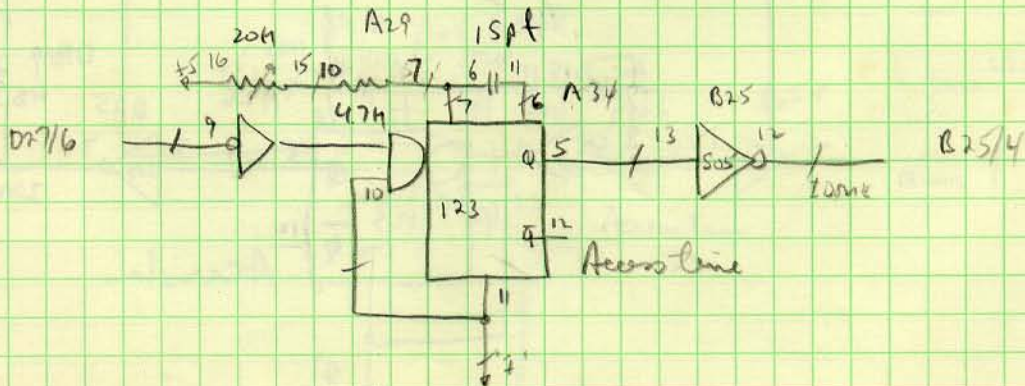 A29
20K 15pf
+5 16 15 10 7 6 11
4.7K 7 6 A34 B25
D27/6 9 Q 5 13 S05 12 B25/4
10
123 Q̅ 12
Access time
11
"1"